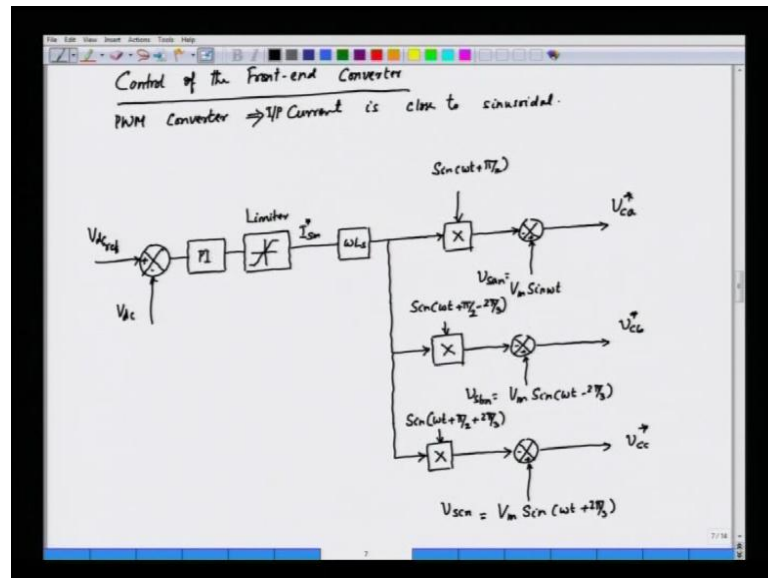 File Edit View Insert Actions Tools Help
Control of the Front-end Converter
PWM Converter ⇒ I/P Current is close to sinusoidal.
Sin(ωt+π/2)
Limiter
V_dc_ref
+
-
I*_sm
ωL_s
X
-
+
V*_ca
V_dc
V_san = V_m Sinωt
Sin(ωt+π/2-2π/3)
X
-
+
V*_cb
V_sbn = V_m Sin(ωt-2π/3)
Sin(ωt+π/2+2π/3)
X
-
+
V*_cc
V_scn = V_m Sin(ωt+2π/3)
7